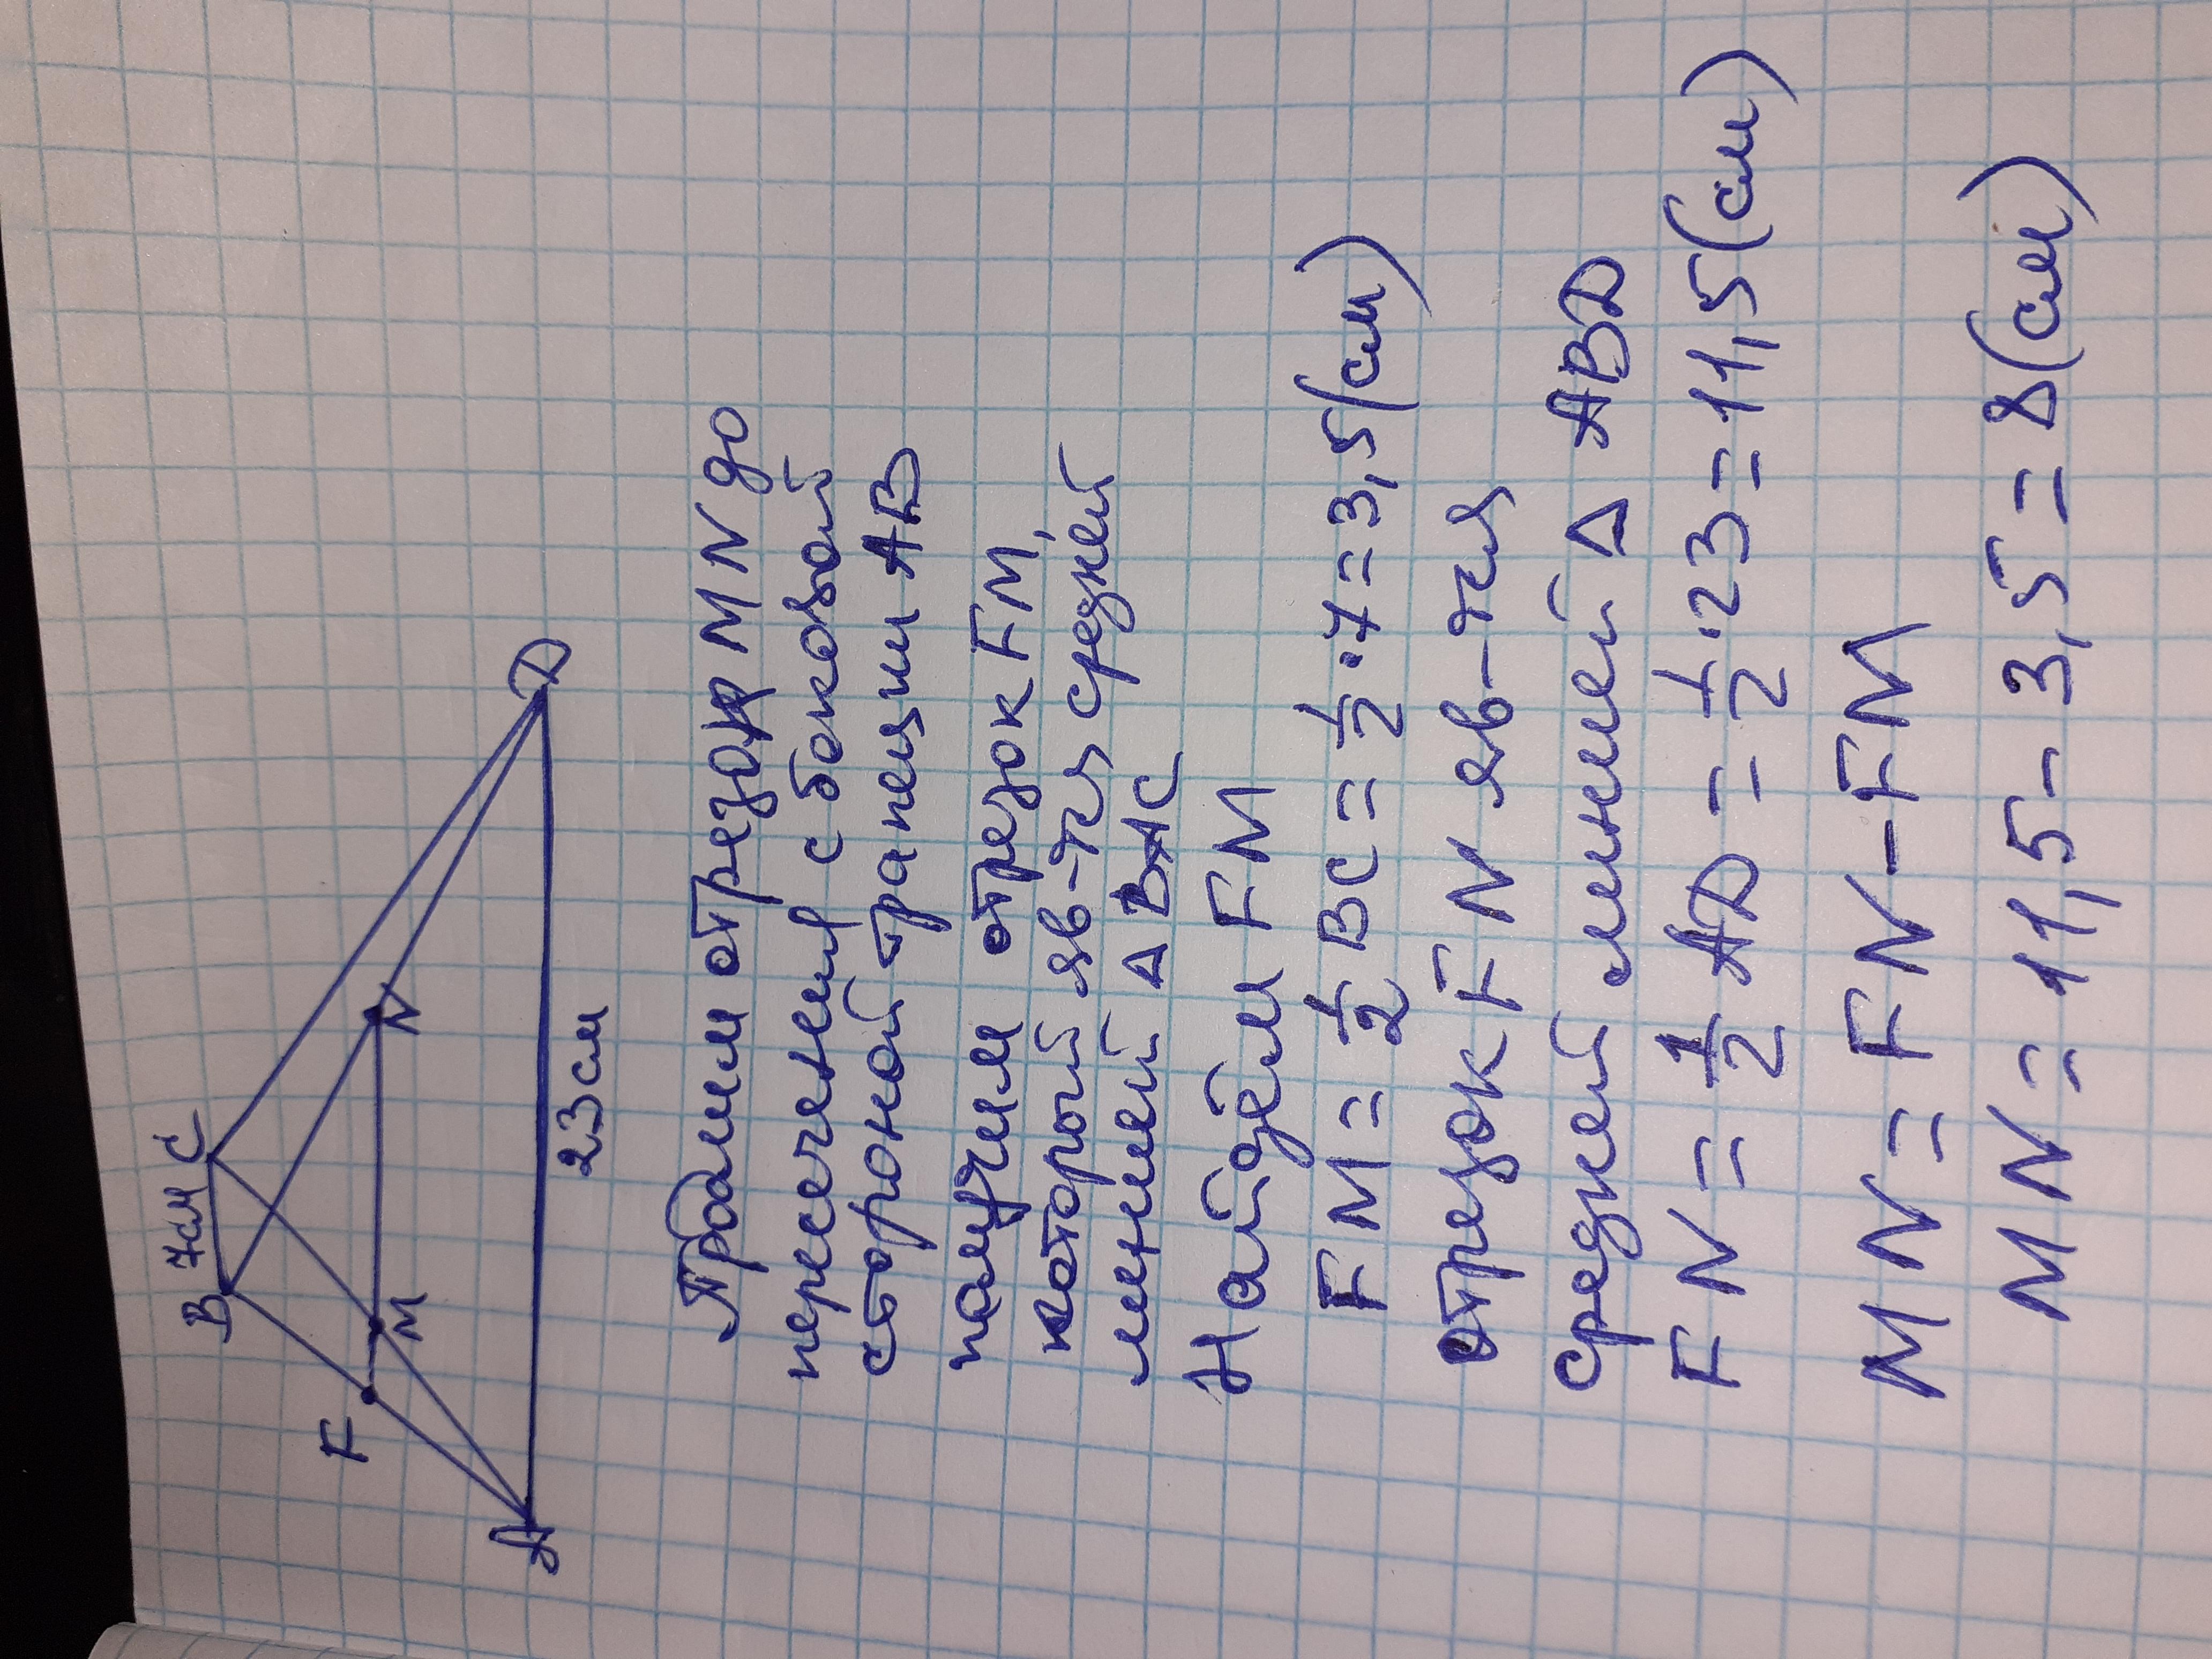 B 7см C
F
M
N
A
D
23 см
Продлим отрезок MN до
пересечения с боковой
стороной трапеции AB
получим отрезок FM,
который яв-тся средней
линией △ BAC
Найдём FM
FM = 1/2 BC = 1/2 · 7 = 3,5 (см)
отрезок FN яв-тся
средней линией △ ABD
FN = 1/2 AD = 1/2 · 23 = 11,5 (см)
MN = FN - FM
MN = 11,5 - 3,5 = 8 (см)